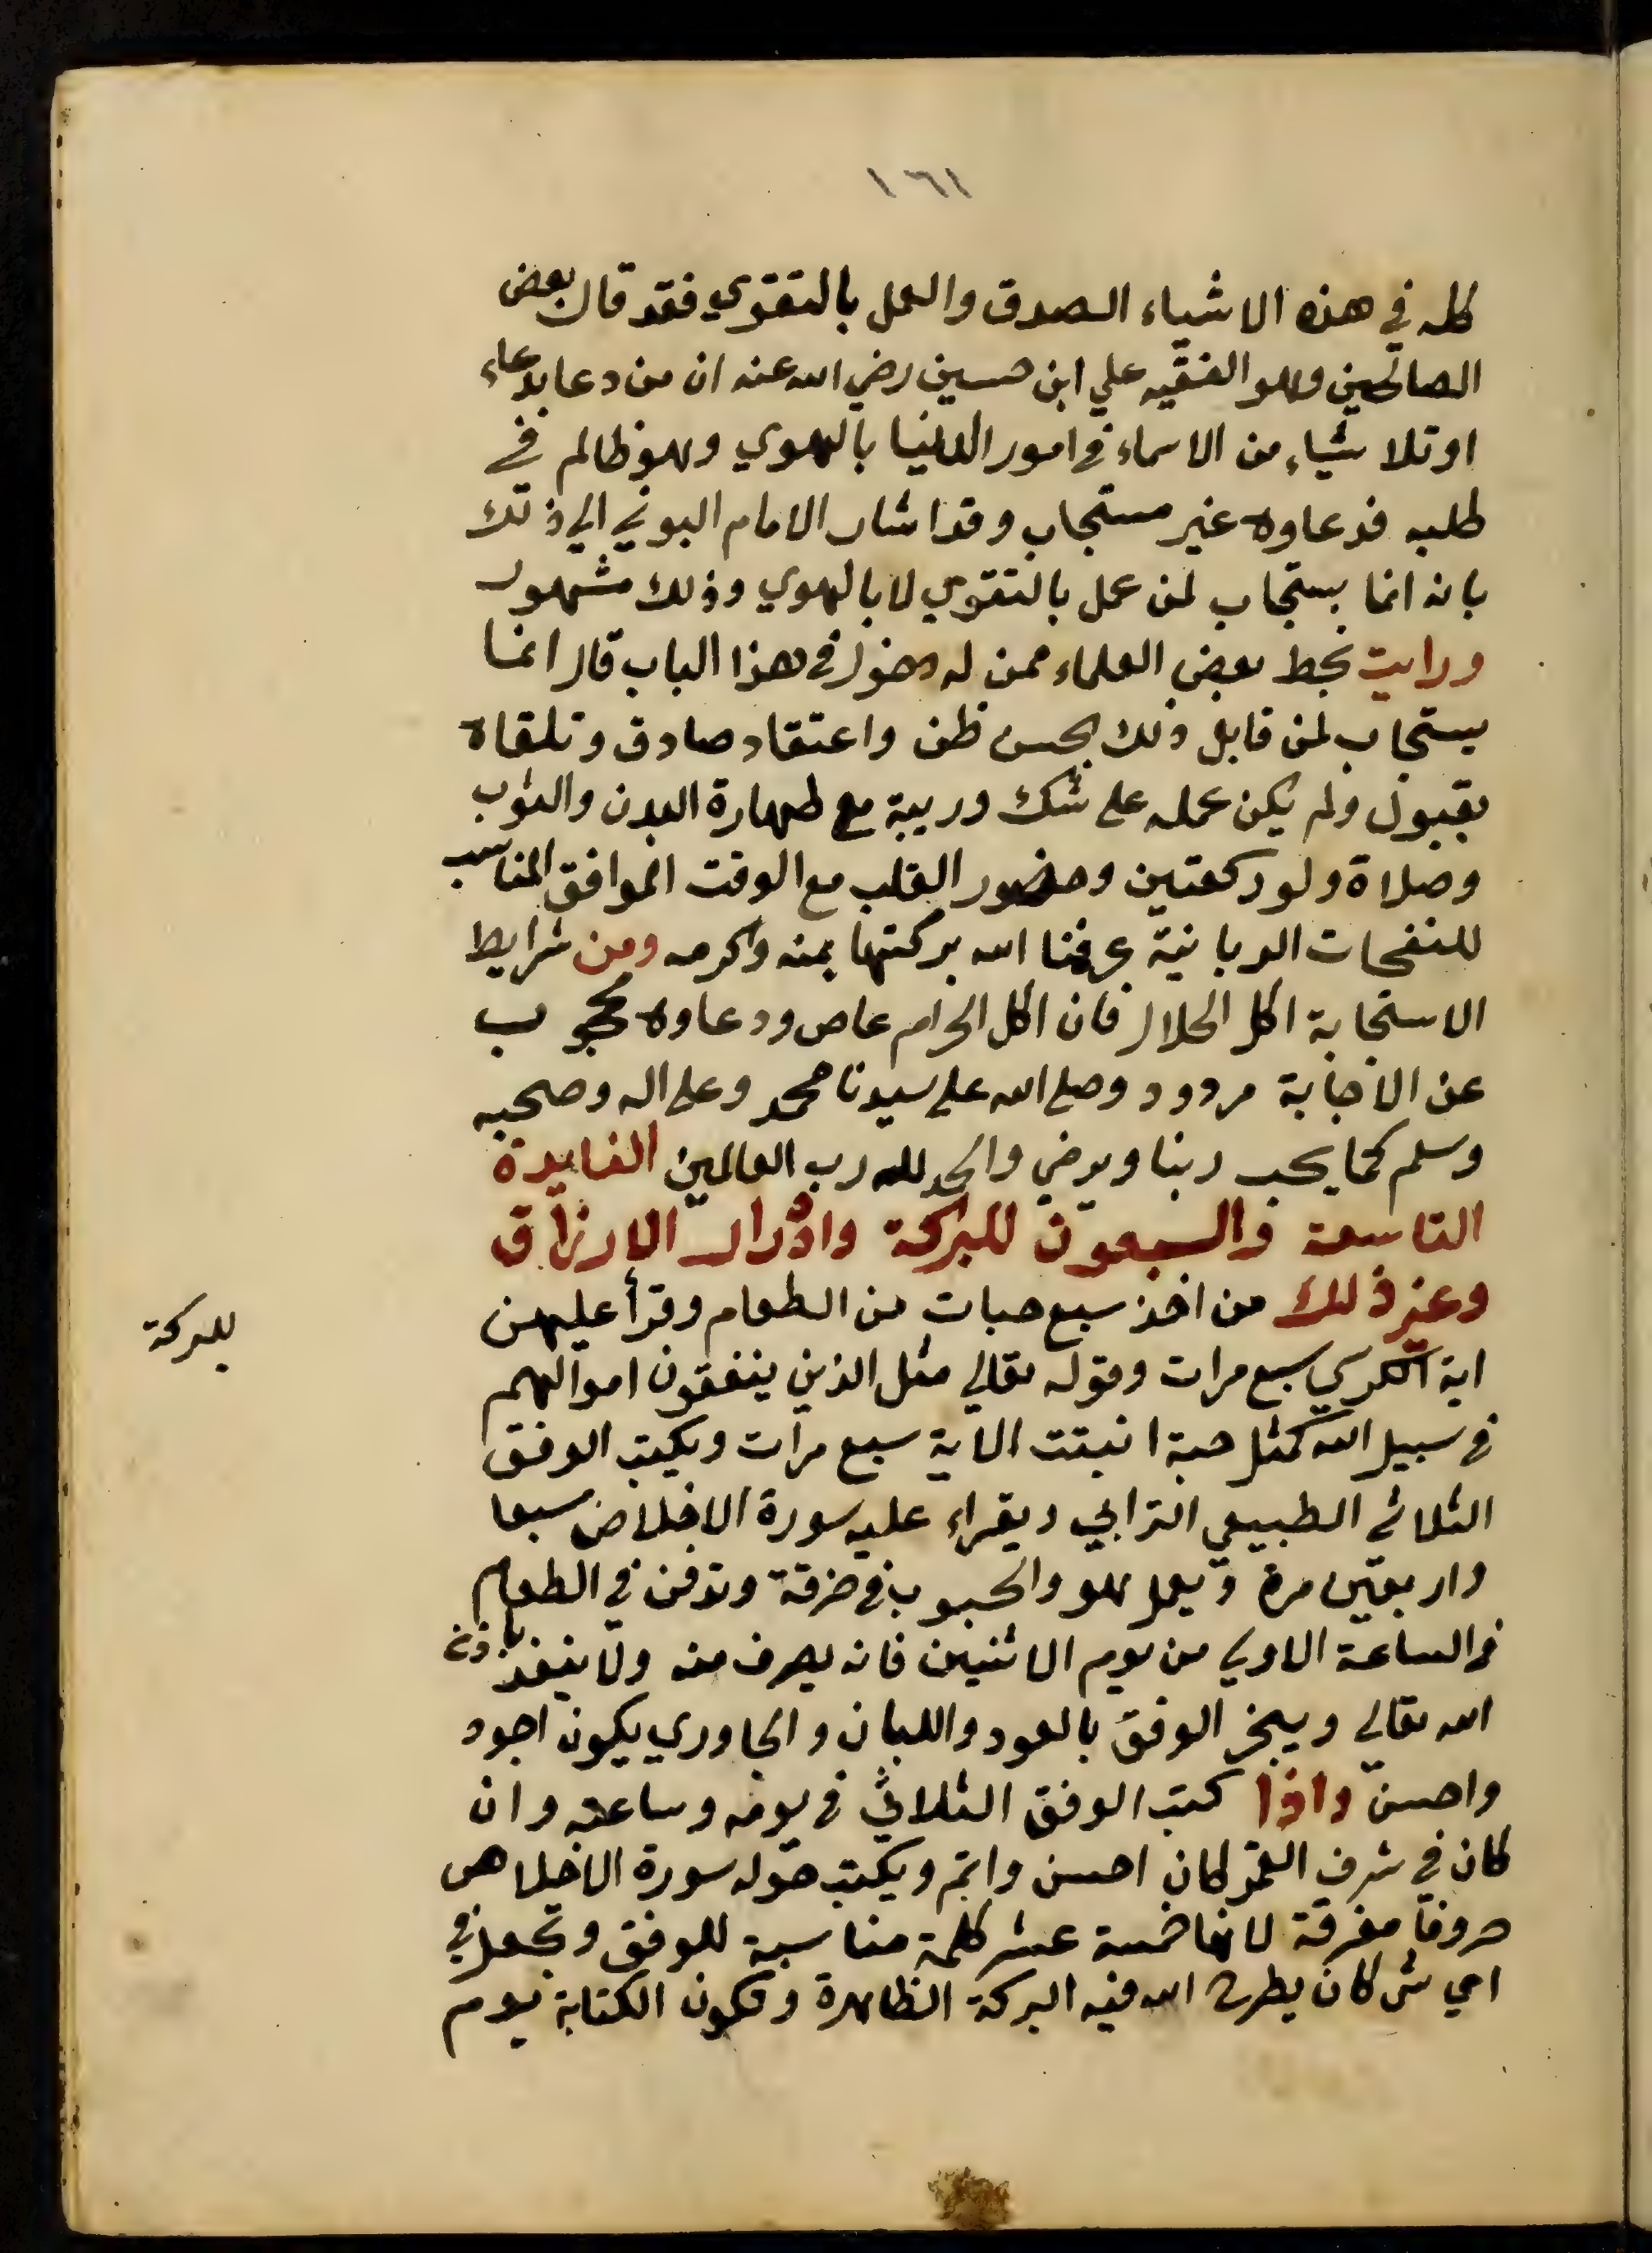 ١٦١
كله في هذه الاشياء الصدق والعمل بالتقوي فقد قال بعض
الصالحين وهو الفقيه علي ابن حسين رضي الله عنه ان من دعا بدعاء
او تلا شياء من الاسماء في امور الدنيا بالهوي وهو ظالم في
طلبه فدعاوه غير مستجاب وقد اشار الامام البوني الي ذلك
بانه انما يستجاب لمن عمل بالتقوي لا بالهوي وذلك مشهور
ورايت بخط بعض العلماء ممن له دخول في هذا الباب قال انما
يستجاب لمن قابل ذلك بحسن ظن واعتقاد صادق وتلقاه
بقبول ولم يكن عمله علي شك وريبة مع طهارة البدن والثوب
وصلاة ولو ركعتين وحضور القلب مع الوقت الموافق المناسب
للنفحات الربانية عرفنا الله بركتها بمنه وكرمه ومن شرايط
الاستجابة اكل الحلال فان اكل الحرام عاص ودعاوه محجوب
عن الاجابة مردود وصلي الله علي سيدنا محمد وعلي اله وصحبه
وسلم كما يحب ربنا ويرضي والحمد لله رب العالمين الفايدة
التاسعة والسبعون للبركة وادرار الارزاق
وغير ذلك من اخذ سبع حبات من الطعام وقرأ عليهن
للبركة
اية الكرسي سبع مرات وقوله تعالي مثل الذين ينفقون اموالهم
في سبيل الله كمثل حبة انبتت الاية سبع مرات ويكتب الوفق
الثلاثي الطبيعي الترابي ويقراء عليه سورة الاخلاص سبعا
واربعين مرة ويعمل هو والحبوب في خرقة وتدفن في الطعام
في الساعة الاولي من يوم الاثنين فانه يصرف منه ولا ينفذ باذن
الله تعالي ويبخر الوفق بالعود واللبان والجاوري يكون اجود
واحسن واذا كتب الوفق الثلاثي في يومه وساعته وان
كان في شرف القمر كان احسن واتم ويكتب حوله سورة الاخلاص
حروفا مفرقة لانها خمسة عشر كلمة مناسبة للوفق وتجعل في
اي شي كان يطرح الله فيه البركة الظاهرة وتكون الكتابة يوم